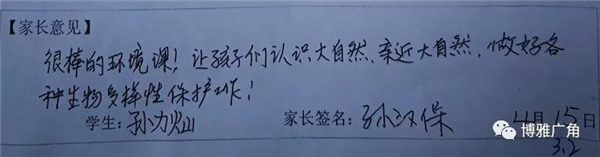 【家长意见】
很棒的环境课！让孩子们认识大自然、亲近大自然，做好各
种生物多样性保护工作！
学生：孙力灿 家长签名：孙汉保 4月15日
博雅广角
3.2